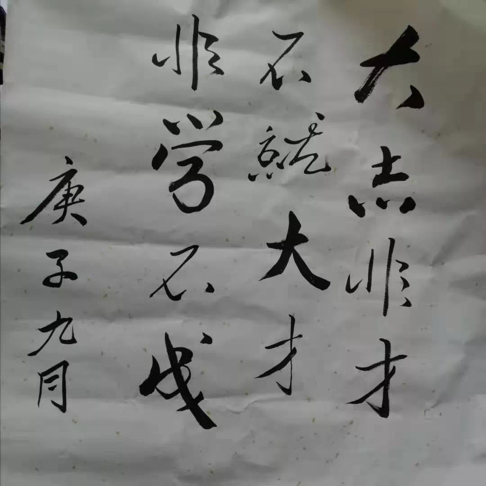 大志非才
不就大才
非学不成
庚子九月